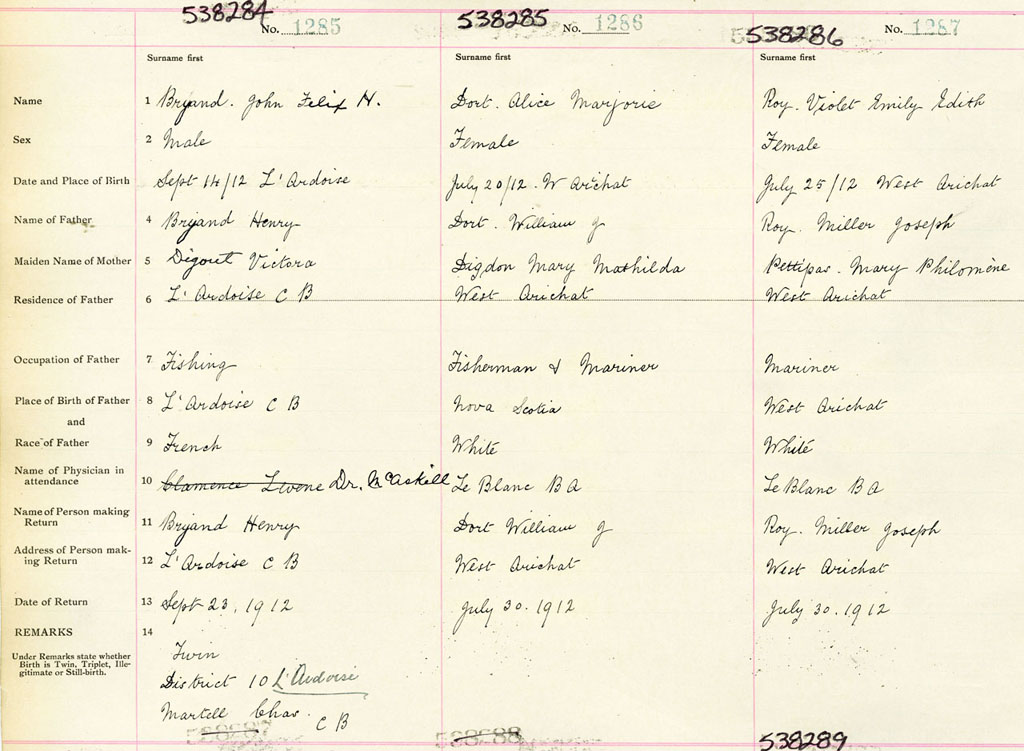 538284 538285 538286
No. 1285 No. 1286 No. 1287
Surname first Surname first Surname first
Name 1 Bryand. John Felix H. Dort. Alice Marjorie Roy. Violet Emily Edith
Sex 2 Male Female Female
Date and Place of Birth Sept 14/12 L'Ardoise July 20/12. W Arichat July 25/12 West Arichat
Name of Father 4 Bryand Henry Dort. William J Roy. Miller Joseph
Maiden Name of Mother 5 Digout Victora Digdon Mary Mathilda Pettipas. Mary Philomène
Residence of Father 6 L'Ardoise C B West Arichat West Arichat
Occupation of Father 7 Fishing Fisherman & Mariner Mariner
Place of Birth of Father 8 L'Ardoise C B Nova Scotia West Arichat
and
Race of Father 9 French White White
Name of Physician in
attendance 10 Clamence Dr. McAskill Le Blanc B A Le Blanc B A
Name of Person making
Return 11 Bryand Henry Dort William J Roy. Miller Joseph
Address of Person mak-
ing Return 12 L'Ardoise C B West Arichat West Arichat
Date of Return 13 Sept 23, 1912 July 30. 1912 July 30. 1912
REMARKS 14
Under Remarks state whether
Birth is Twin, Triplet, Ille-
gitimate or Still-birth.
Twin
District 10 L'Ardoise
Martell Chas. C B
538287 538288 538289